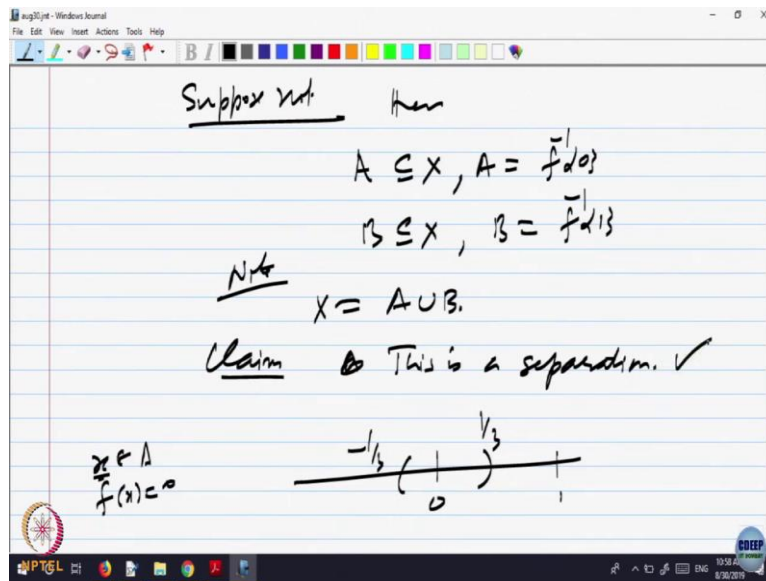 aug30.jnt - Windows Journal
File Edit View Insert Actions Tools Help
B I
Suppose not. then
A ⊆ X, A = f⁻¹{0}
B ⊆ X, B = f⁻¹{1}
Note
X = A ∪ B.
Claim This is a separation. ✓
x ∈ A
f(x) = 0
-1/3 ( 0 ) 1/3 1
NPTEL
CDEEP
IIT BOMBAY
ENG
8/30/2019